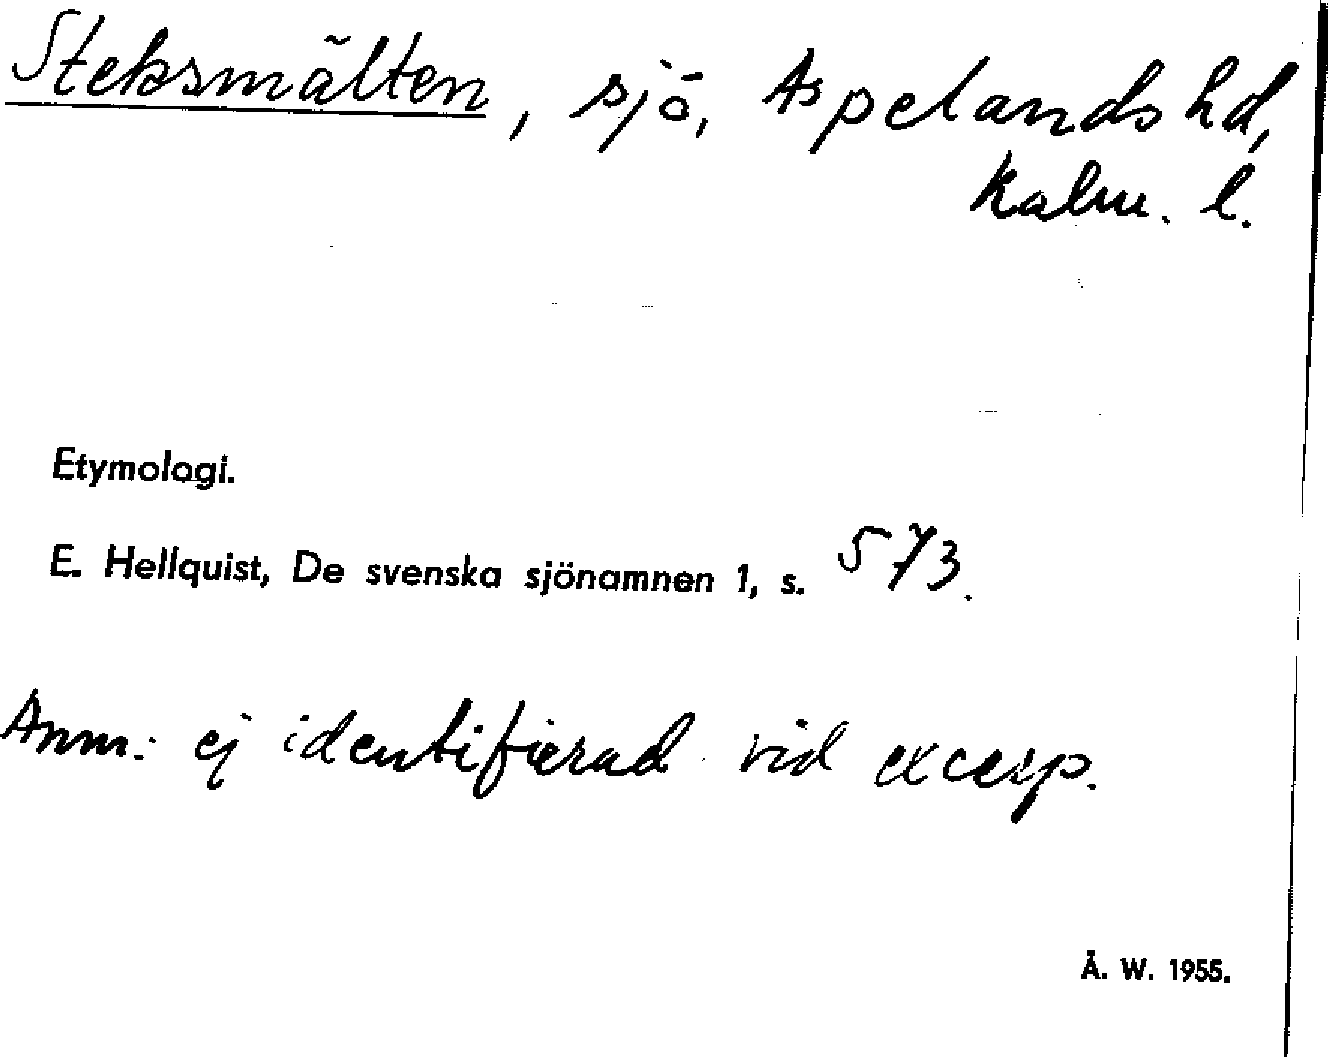 Steksmälten, sjö, Aspelands hd,
Kalm. l.
Etymologi.
E. Hellquist, De svenska sjönamnen 1, s. 573.
Anm: ej identifierad vid excerp.
Å. W. 1955.